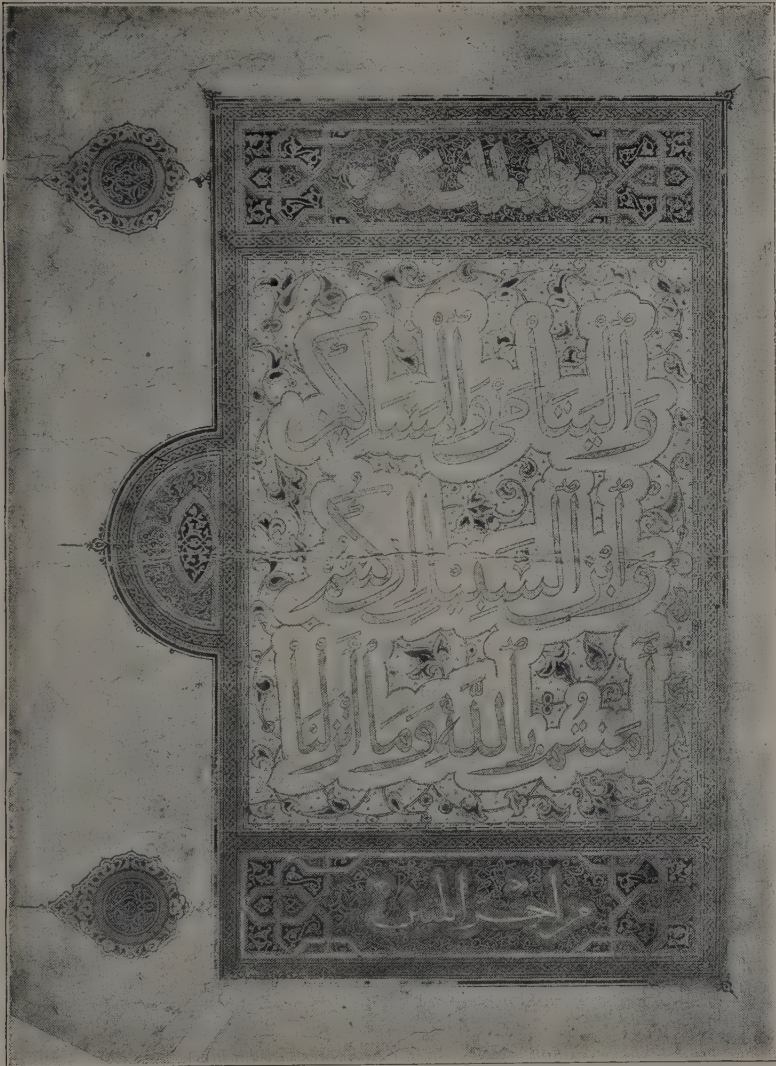 وَالْيَتَامَى وَالْمَسَاكِينِ
وَابْنِ السَّبِيلِ اِنْ كُنْتُمْ
اٰمَنْتُمْ بِاللّٰهِ وَمَا اَنْزَلْنَا